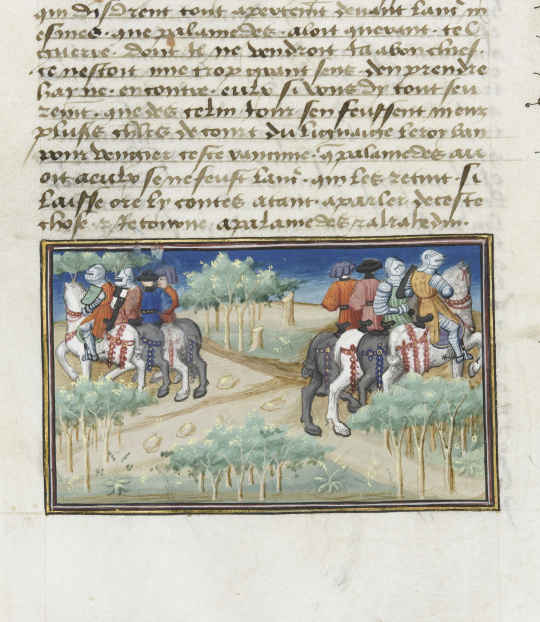 qui disdrent tout apertement devant lanc̄ m
esmes que palamedes aloit querant tel
guerre dont il ne vendroit ia a bon chief.
ce nestoit mie trop grant sens den prendre
hayne encontre eulx si vous dy tout seu
rement que des celui iour sen feussent meuz
plus̄s ch̄lrs de court du lignaige le roy ban
pour vengier ceste vantance q̄ palamedes au
oit a eulx se ne feust lanc̄ qui les retint Si
laisse ore ly contes atant a parler de ceste
chose & Retourne a palamedes